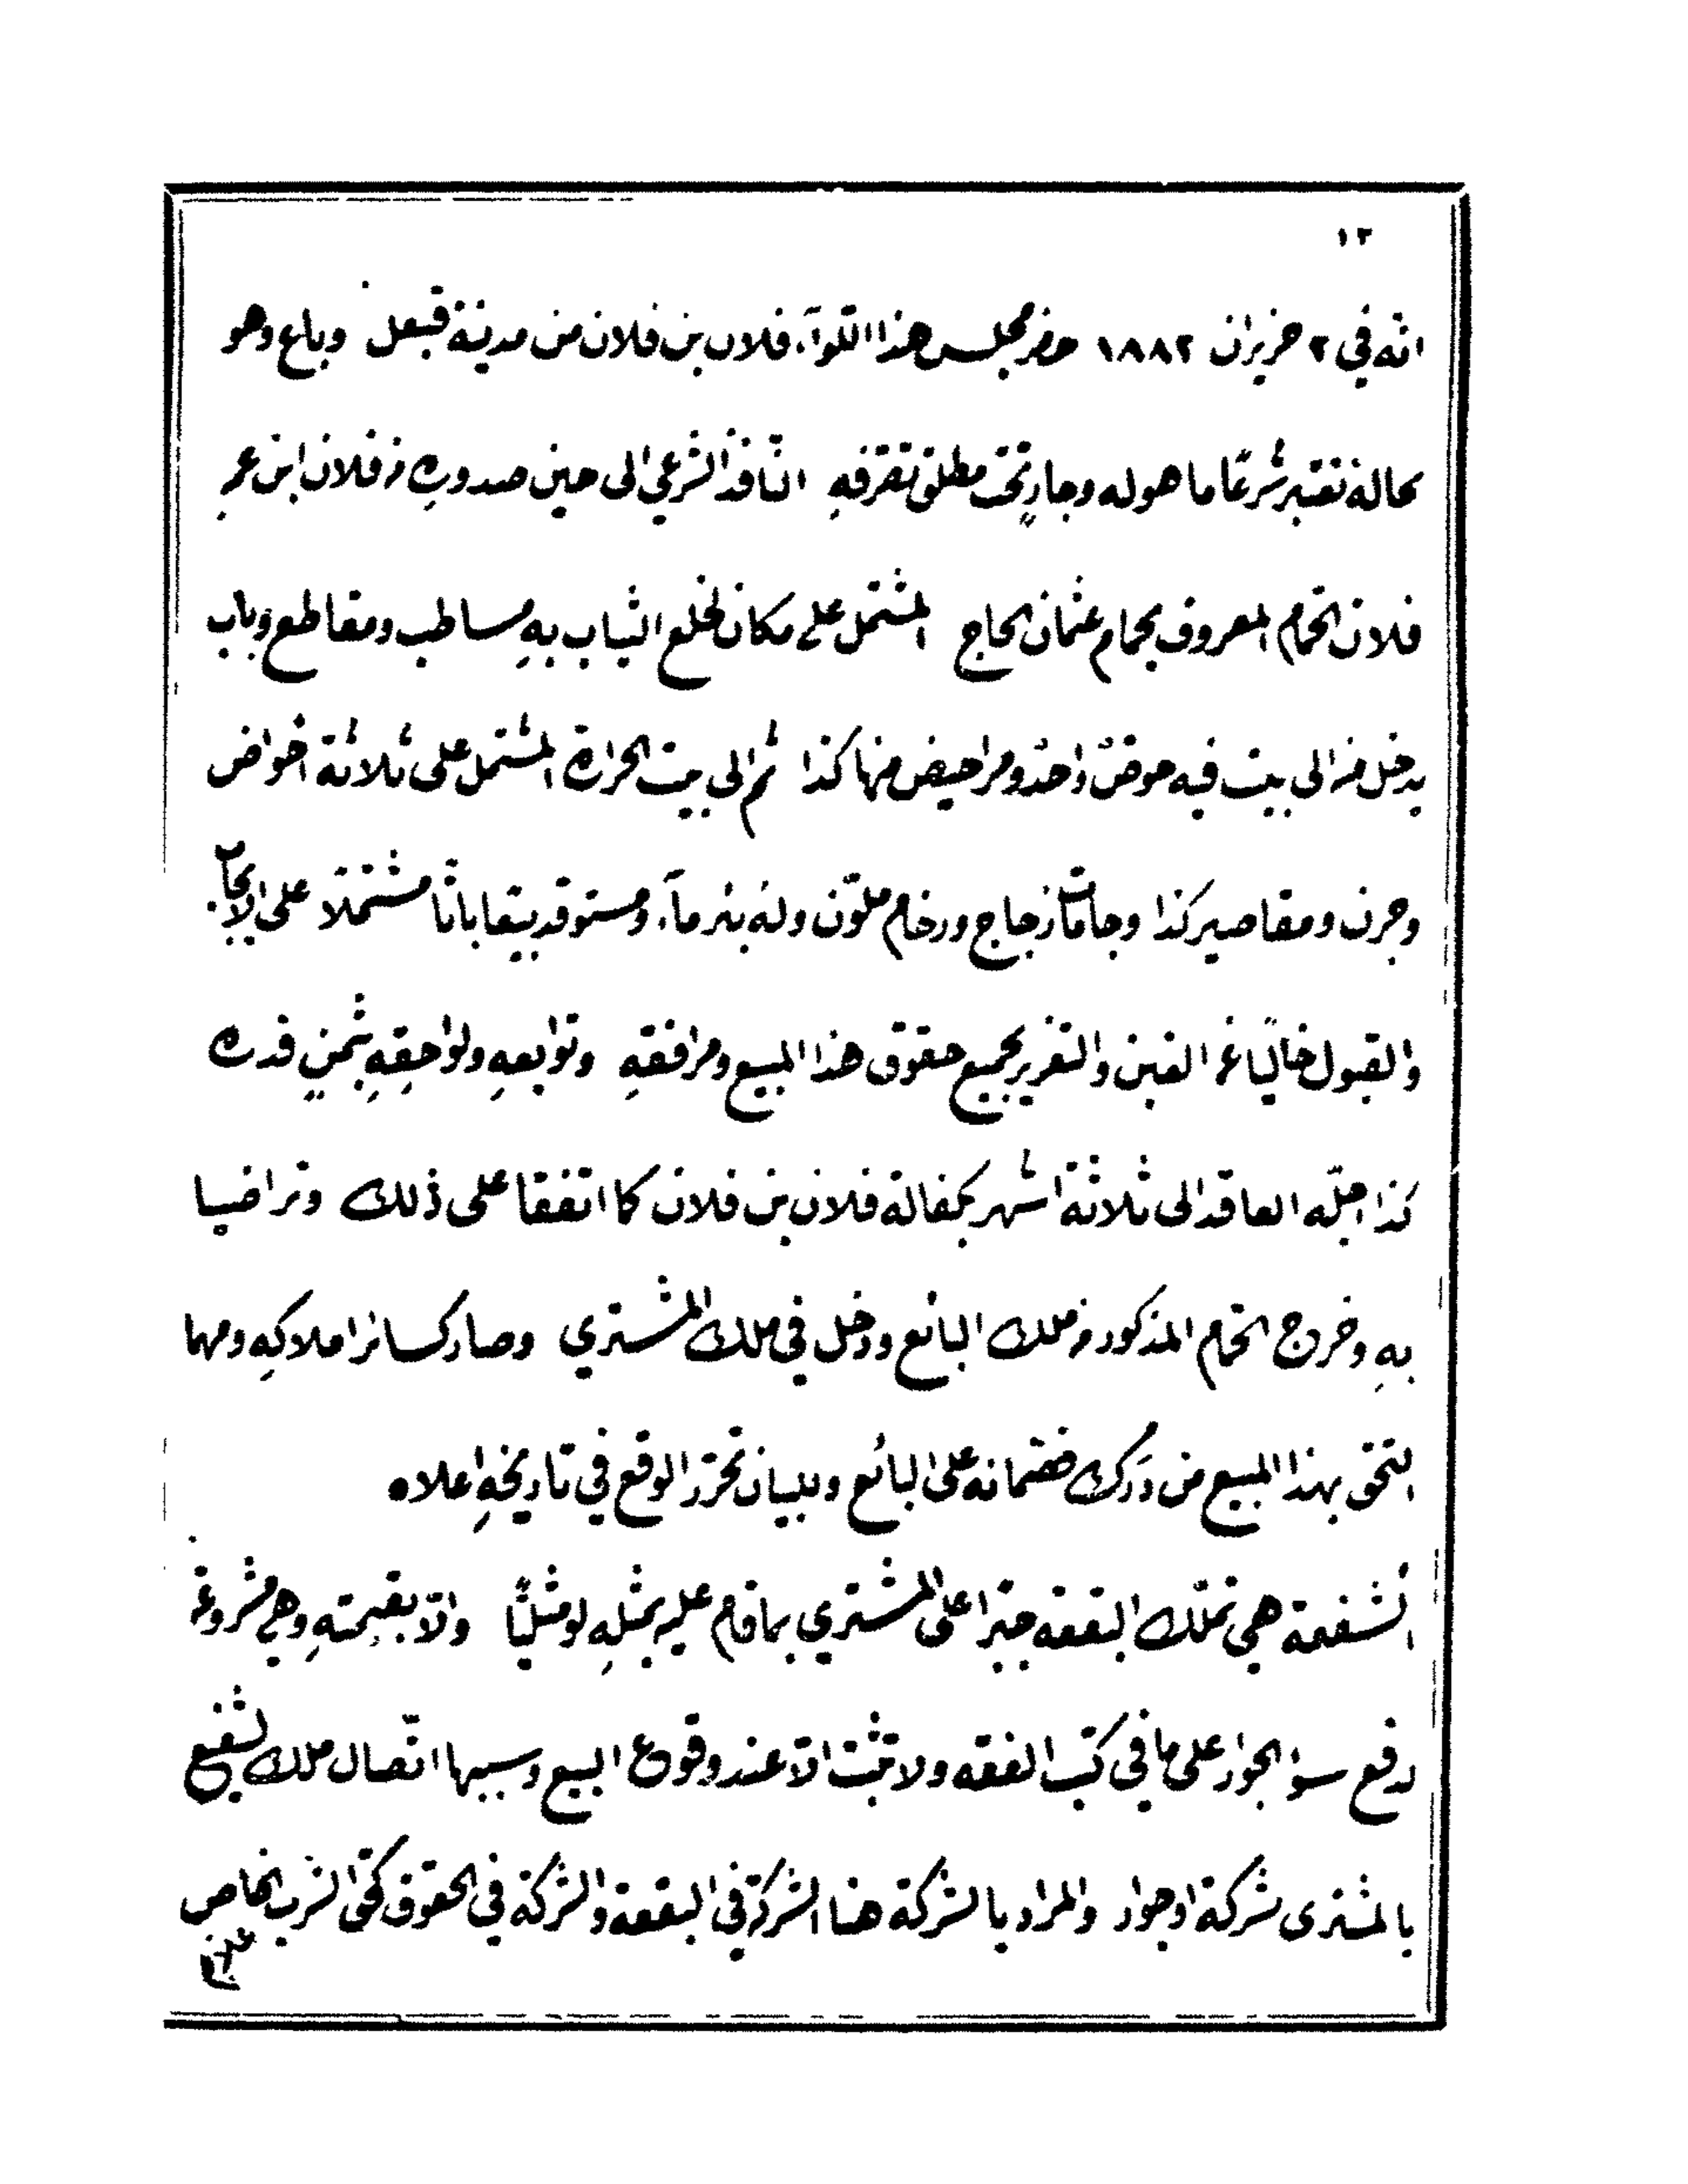 ١٣
انّه في ٢ حزيران ١٨٨٢ حضر مجلس هذا اللوآء فلان بن فلان من مدينة قبعل وباع وهو
بحالة تعتبر شرعًا ما هو له وجارٍ تحت مطلق تصرّفهِ النّافذ الشرعي الى حين صدورهِ من فلان ابن عمرِ
فلان الحمّام المعروف بحمام عثمان الحاج المشتمل على مكان لخلع الثياب بهِ مساطب ومقاطع وباب
يدخل منه الى بيت فيه حوضٌ واحدٌ ومراحيض منها كذا ثم الى بيت الحرارة المشتمل على ثلاثة احواض
وجرن ومقاصير كذا وجاماتُ زجاج ورخام ملوّن وله بئر مآء ومستوقد بيعًا باتًا مشتملًا على الايجاب
والقبول خاليًا عن الغبن والتغرير بجميع حقوق هذا المبيع ومرافقهِ وتوابعهِ ولواحقِهِ بثمنٍ قدره
كذا اجلّه العاقد الى ثلاثة اشهر بكفالة فلان بن فلان كما اتفقا على ذلك وتراضيا
بهِ وخرج الحمّام المذكور من ملك البائع ودخل في ملك المشتري وصار كسائر املاكهِ ومهما
التحق بهذا المبيع من دَرك فضمانه على البائع وللبيان تحرّر الوقع في تاريخهِ اعلاه
الشفعة هي تملّك البقعة جبرا على المشتري بما قام عليه بمثلهِ لو مثليًّا والّا بقيمتهِ وهي مشروعة
لدفع سوء الجوار على ما في كتب الفقه ولا تثبت الّا عند وقوع البيع وسببها اتّصال ملك الشفيع
بالمشترى بشركة او جوار والمراد بالشركة هنا الشركة في البقعة والشركة في الحقوق كحق الشرب الخاص